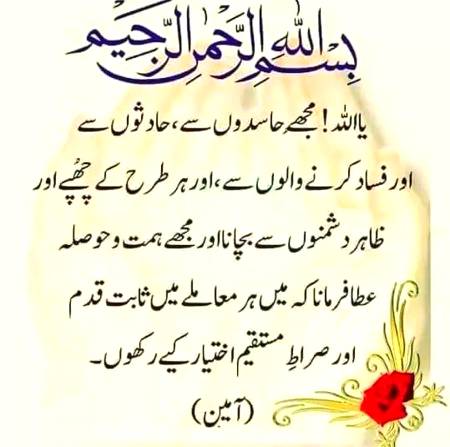 بِسْمِ اللّٰهِ الرَّحْمٰنِ الرَّحِيْمِ
یا اللہ! مجھے حاسدوں سے، حادثوں سے
اور فساد کرنے والوں سے، اور ہر طرح کے چھُپے اور
ظاہر دشمنوں سے بچانا اور مجھے ہمت و حوصلہ
عطا فرمانا کہ میں ہر معاملے میں ثابت قدم
اور صراطِ مستقیم اختیار کیے رکھوں۔
(آمین)